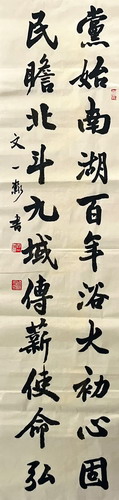 黨始南湖百年浴火初心固
民瞻北斗九域傳薪使命弘
文一彰書